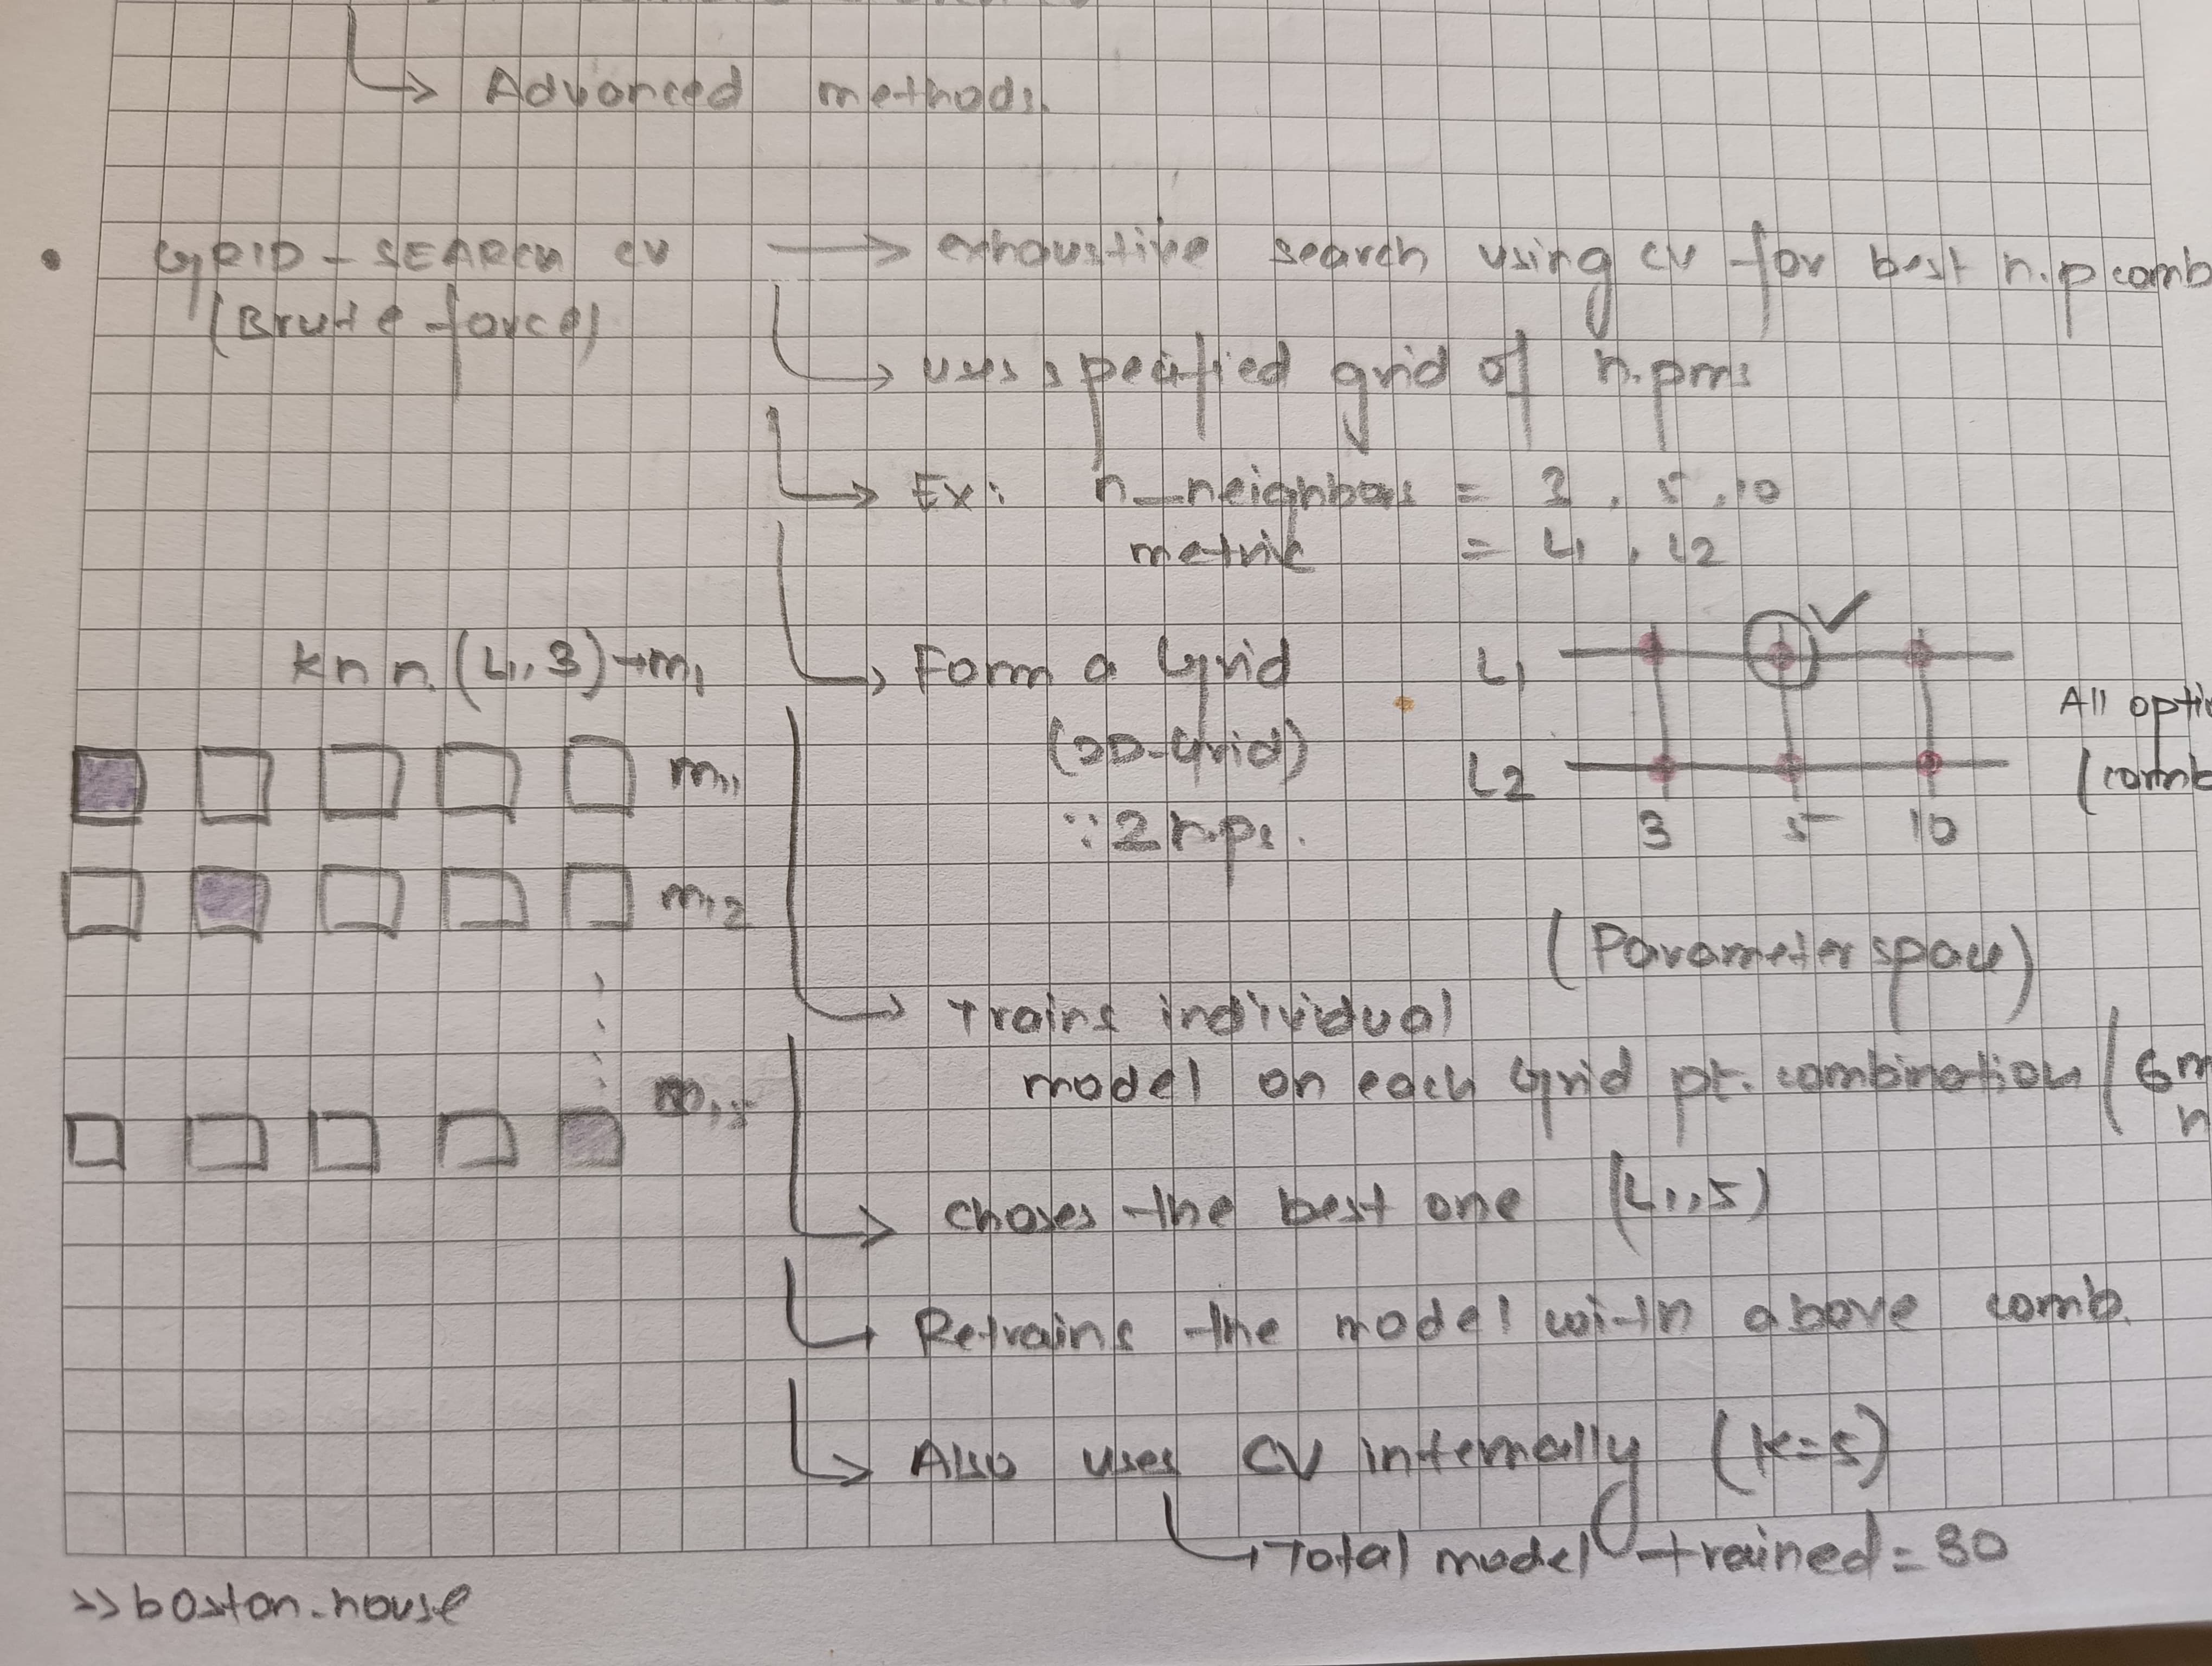 Advanced methods.
GRID-SEARCH CV → exhaustive search using CV for best h.p comb
(Brute force)
uses specified grid of h.pms
Ex: n_neighbors = 3, 5, 10
metric = L1, L2
knn (L1, 3) → m1
Form a Grid
L1
(2D-Grid)
All opti
L2
(comb
m11
∵ 2 h.ps.
3 5 10
m12
(Parameter space)
Trains individual
model on each Grid pt. combination (6 m
m15
choses the best one (L1, 5)
Retrains the model with above comb.
Also uses CV internally (k=5)
Total model trained = 30
>> boston-house